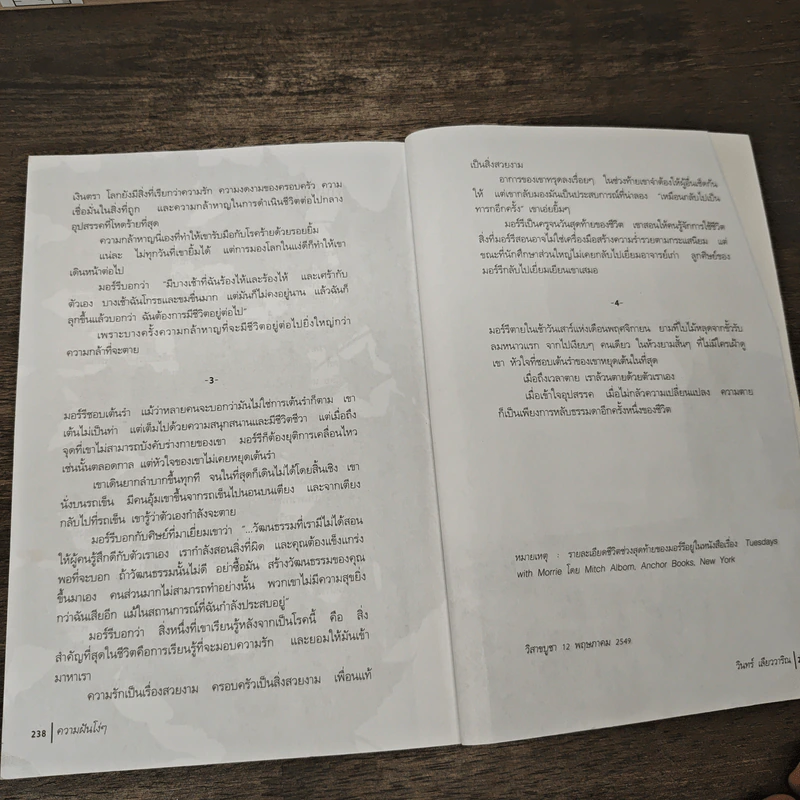 เงินตรา โลกยังมีสิ่งที่เรียกว่าความรัก ความงดงามของครอบครัว ความ
เชื่อมั่นในสิ่งที่ถูก และความกล้าหาญในการดำเนินชีวิตต่อไปกลาง
อุปสรรคที่โหดร้ายที่สุด
ความกล้าหาญนี่เองที่ทำให้เขารับมือกับโรคร้ายด้วยรอยยิ้ม
แน่ละ ไม่ทุกวันที่เขายิ้มได้ แต่การมองโลกในแง่ดีก็ทำให้เขา
เดินหน้าต่อไป
มอร์รีบอกว่า "มีบางเช้าที่ฉันร้องไห้และร้องไห้ และเศร้ากับ
ตัวเอง บางเช้าฉันโกรธและขมขื่นมาก แต่มันก็ไม่คงอยู่นาน แล้วฉันก็
ลุกขึ้นแล้วบอกว่า ฉันต้องการมีชีวิตอยู่ต่อไป"
เพราะบางครั้งความกล้าหาญที่จะมีชีวิตอยู่ต่อไปยิ่งใหญ่กว่า
ความกล้าที่จะตาย
-3-
มอร์รีชอบเต้นรำ แม้ว่าหลายคนจะบอกว่ามันไม่ใช่การเต้นรำก็ตาม เขา
เต้นไม่เป็นท่า แต่เต็มไปด้วยความสนุกสนานและมีชีวิตชีวา แต่เมื่อถึง
จุดที่เขาไม่สามารถบังคับร่างกายของเขา มอร์รีก็ต้องยุติการเคลื่อนไหว
เช่นนั้นตลอดกาล แต่หัวใจของเขาไม่เคยหยุดเต้นรำ
เขาเดินยากลำบากขึ้นทุกที จนในที่สุดก็เดินไม่ได้โดยสิ้นเชิง เขา
นั่งบนรถเข็น มีคนอุ้มเขาขึ้นจากรถเข็นไปนอนบนเตียง และจากเตียง
กลับไปที่รถเข็น เขารู้ว่าตัวเองกำลังจะตาย
มอร์รีบอกกับศิษย์ที่มาเยี่ยมเขาว่า "...วัฒนธรรมที่เรามีไม่ได้สอน
ให้ผู้คนรู้สึกดีกับตัวเราเอง เรากำลังสอนสิ่งที่ผิด และคุณต้องแข็งแกร่ง
พอที่จะบอก ถ้าวัฒนธรรมนั้นไม่ดี อย่าซื้อมัน สร้างวัฒนธรรมของคุณ
ขึ้นมาเอง คนส่วนมากไม่สามารถทำอย่างนั้น พวกเขาไม่มีความสุขยิ่ง
กว่าฉันเสียอีก แม้ในสถานการณ์ที่ฉันกำลังประสบอยู่"
มอร์รีบอกว่า สิ่งหนึ่งที่เขาเรียนรู้หลังจากเป็นโรคนี้ คือ สิ่ง
สำคัญที่สุดในชีวิตคือการเรียนรู้ที่จะมอบความรัก และยอมให้มันเข้า
มาหาเรา
ความรักเป็นเรื่องสวยงาม ครอบครัวเป็นสิ่งสวยงาม เพื่อนแท้
238 ความฝันโง่ๆ
เป็นสิ่งสวยงาม
อาการของเขาทรุดลงเรื่อยๆ ในช่วงท้ายเขาจำต้องให้ผู้อื่นเช็ดก้น
ให้ แต่เขากลับมองมันเป็นประสบการณ์ที่น่าลอง "เหมือนกลับไปเป็น
ทารกอีกครั้ง" เขาเอ่ยยิ้มๆ
มอร์รีเป็นครูจนวันสุดท้ายของชีวิต เขาสอนให้คนรู้จักการใช้ชีวิต
สิ่งที่มอร์รีสอนอาจไม่ใช่เครื่องมือสร้างความร่ำรวยตามกระแสนิยม แต่
ขณะที่นักศึกษาส่วนใหญ่ไม่เคยกลับไปเยี่ยมอาจารย์เก่า ลูกศิษย์ของ
มอร์รีกลับไปเยี่ยมเยียนเขาเสมอ
-4-
มอร์รีตายในเช้าวันเสาร์แห่งเดือนพฤศจิกายน ยามที่ใบไม้หลุดจากขั้วรับ
ลมหนาวแรก จากไปเงียบๆ คนเดียว ในห้วงยามสั้นๆ ที่ไม่มีใครเฝ้าดู
เขา หัวใจที่ชอบเต้นรำของเขาหยุดเต้นในที่สุด
เมื่อถึงเวลาตาย เราล้วนตายด้วยตัวเราเอง
เมื่อเข้าใจอุปสรรค เมื่อไม่กลัวความเปลี่ยนแปลง ความตาย
ก็เป็นเพียงการหลับธรรมดาอีกครั้งหนึ่งของชีวิต
หมายเหตุ : รายละเอียดชีวิตช่วงสุดท้ายของมอร์รีอยู่ในหนังสือเรื่อง Tuesdays
with Morrie โดย Mitch Albom, Anchor Books, New York
วิสาขบูชา 12 พฤษภาคม 2549
วินทร์ เลียววาริณ